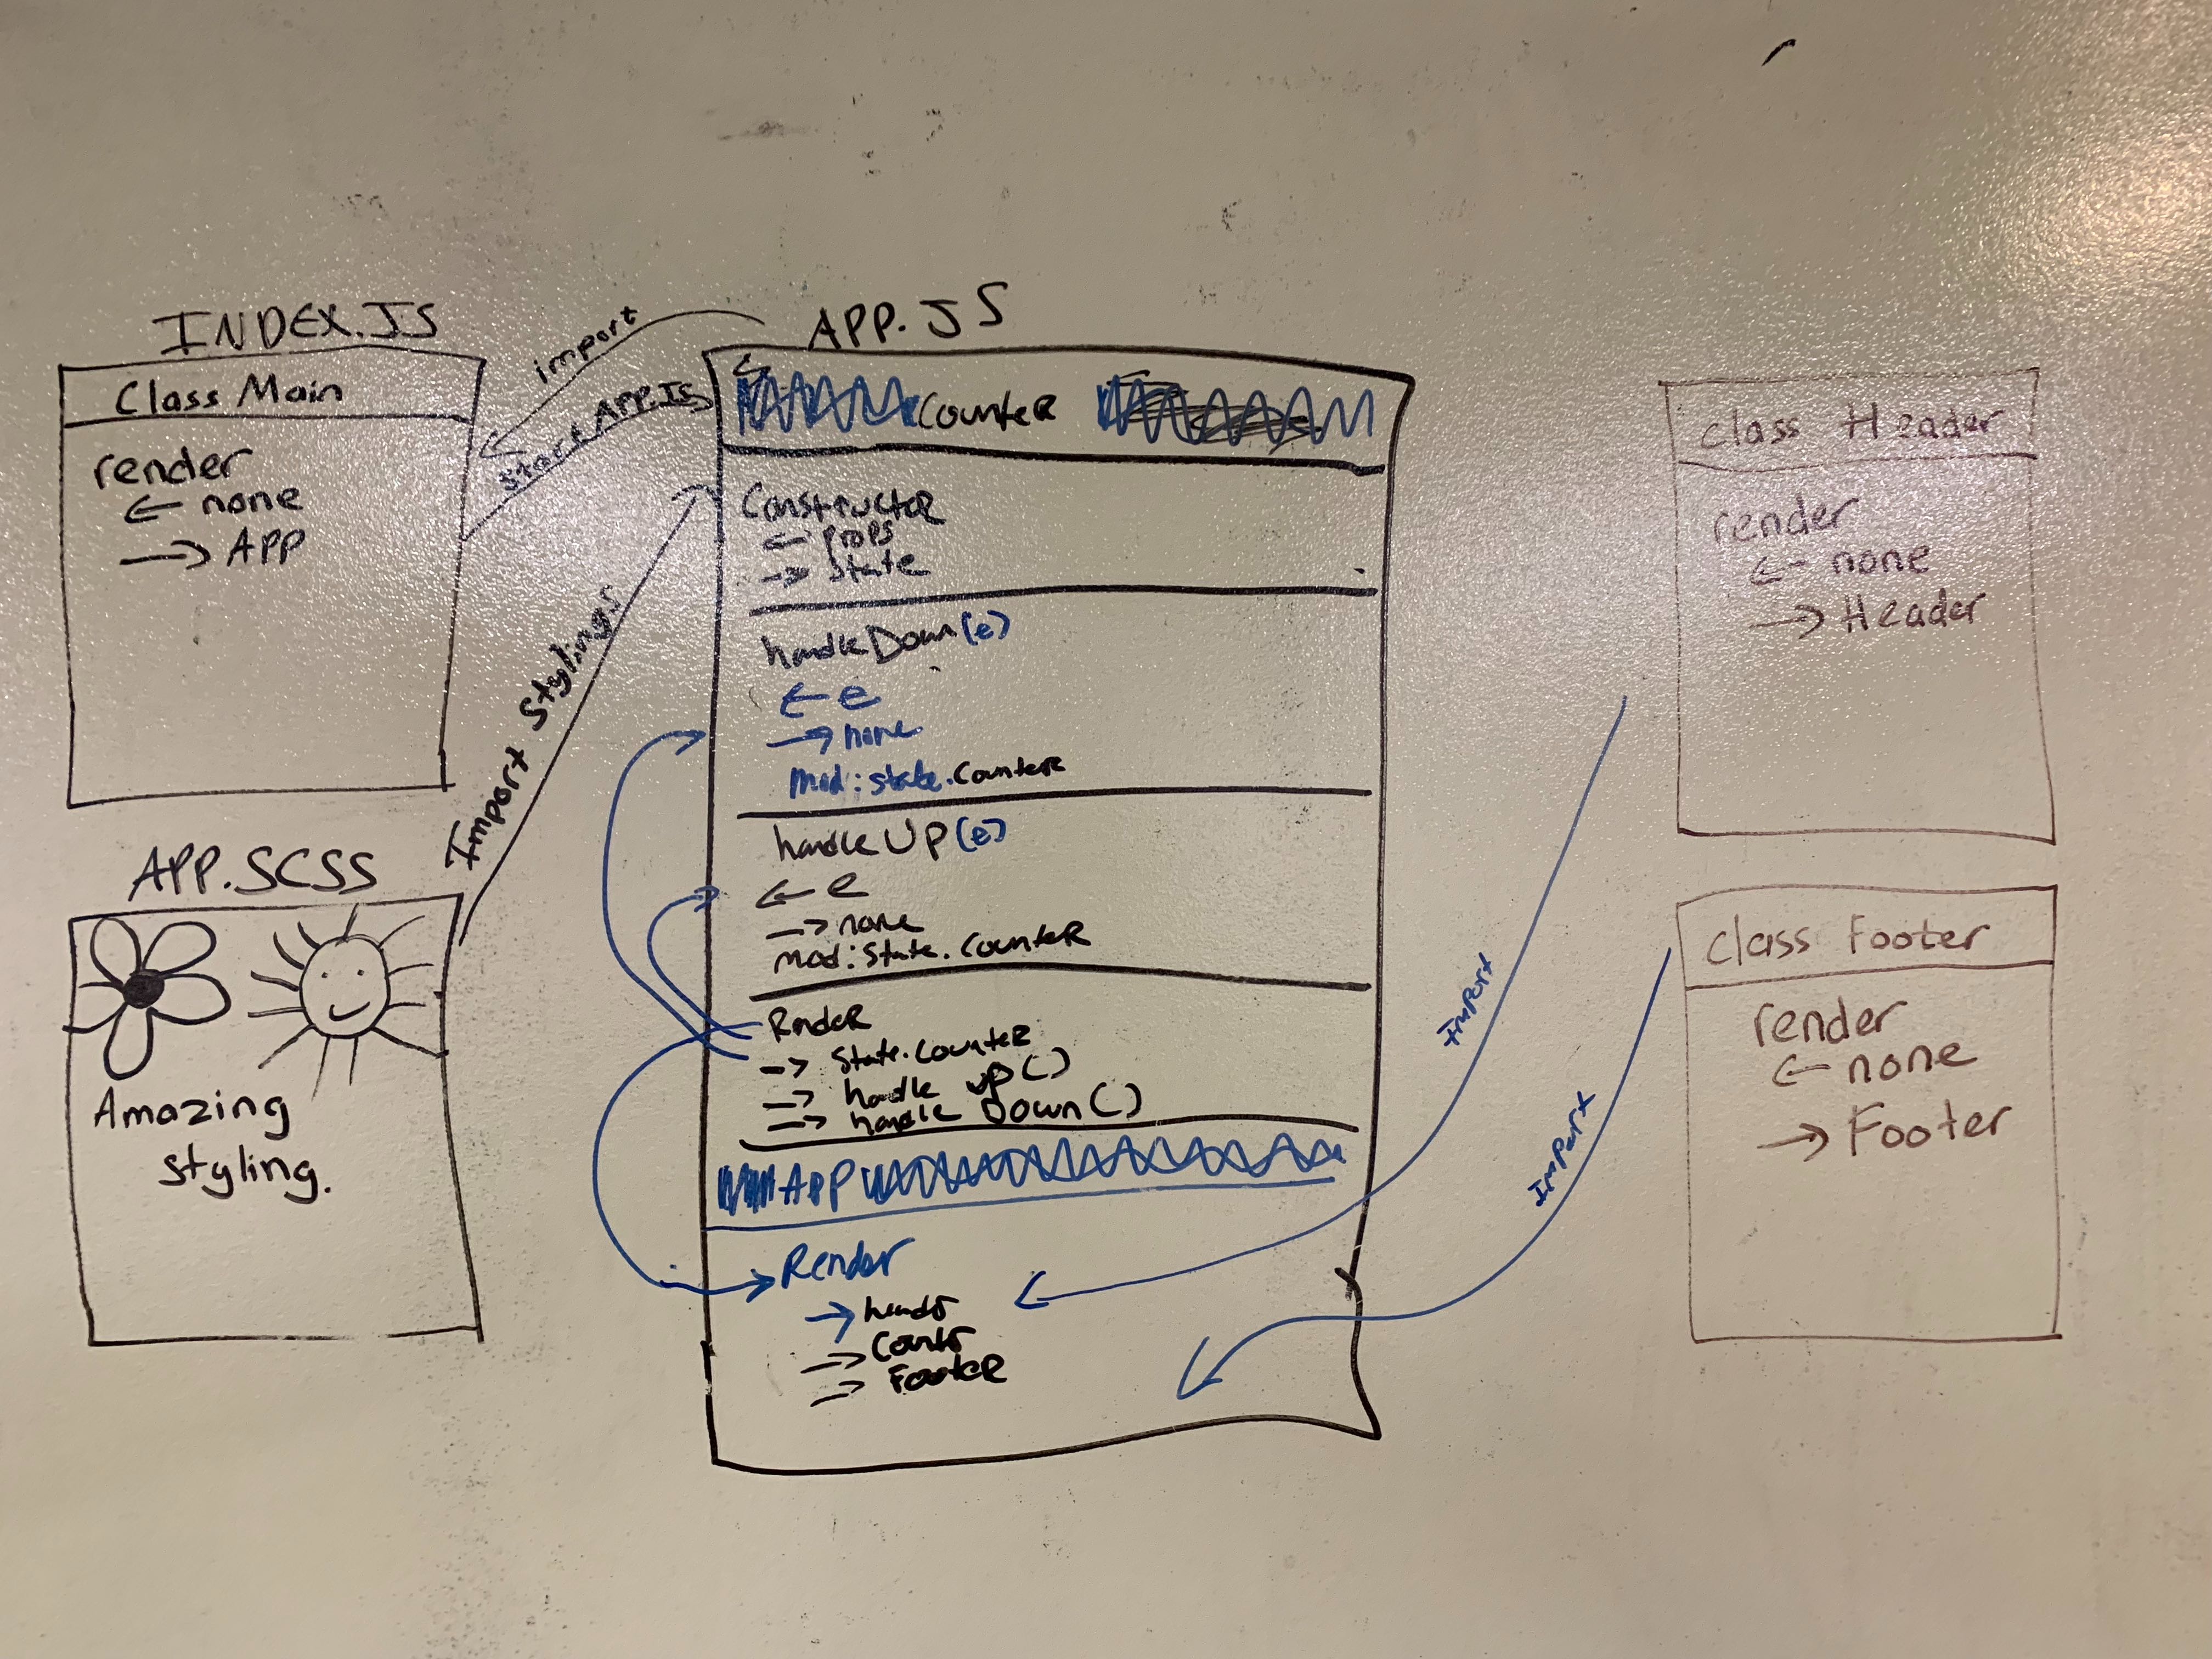 INDEX.JS
Class Main
render
← none
→ APP
import
Start APP.JS
Import Stylings
APP.SCSS
Amazing
styling.
APP.JS
CounteR
ConstructoR
← props
→ State
handleDown(e)
← e
→ none
Mod: state.CounteR
handleUp(e)
← e
→ none
mod: State.CounteR
RendeR
→ State.CounteR
→ handle up()
→ handle Down()
APP
Render
→
→
→ FooteR
Import
Import
class Header
render
← none
→ Header
class Footer
render
← none
→ Footer